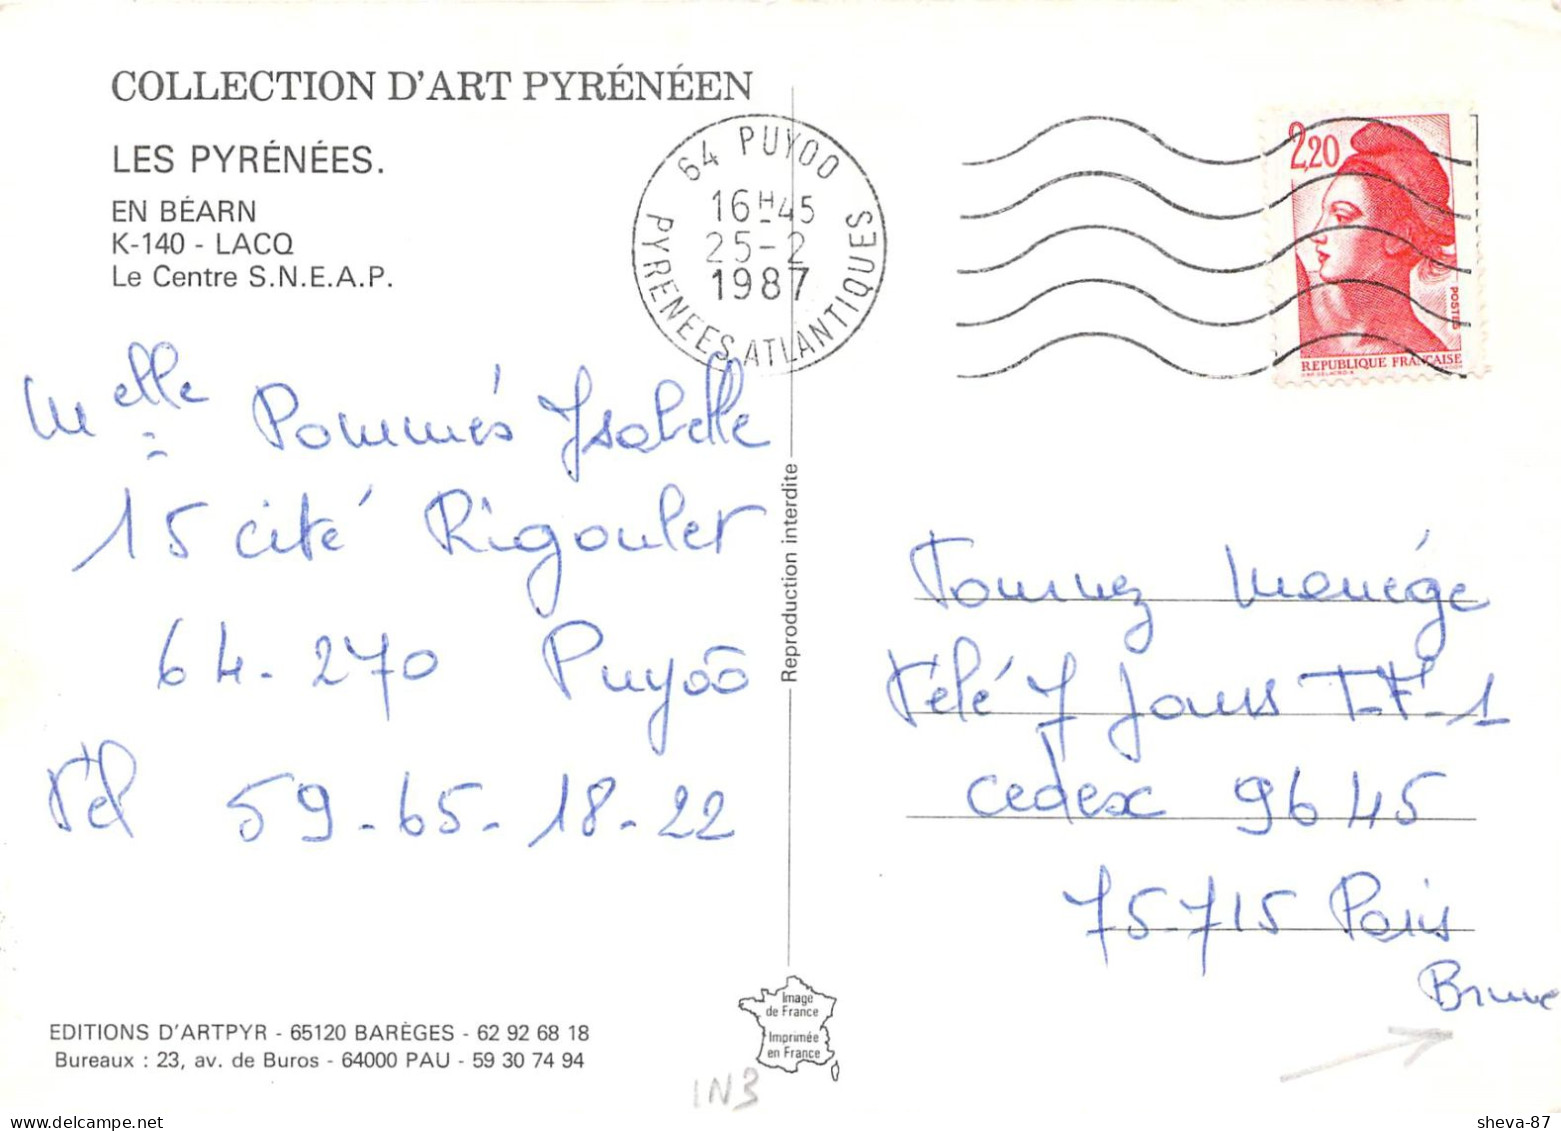 COLLECTION D'ART PYRÉNÉEN
LES PYRÉNÉES.
EN BÉARN
K-140 - LACQ
Le Centre S.N.E.A.P.
64 PUYOO
16H45
25-2
1987
PYRENEES ATLANTIQUES
2,20
POSTES
REPUBLIQUE FRANÇAISE
Melle Pommiés Ysabelle
15 cité Rigoulet
64-270 Puyôô
Tél 59-65-18-22
Reproduction interdite
Tournez Manége
Télé 7 Jours T-F-1
cedex 9645
75-715 Paris
Brune
EDITIONS D'ARTPYR - 65120 BARÈGES - 62 92 68 18
Bureaux : 23, av. de Buros - 64000 PAU - 59 30 74 94
Image
de France
Imprimée
en France
1N3
sheva-87